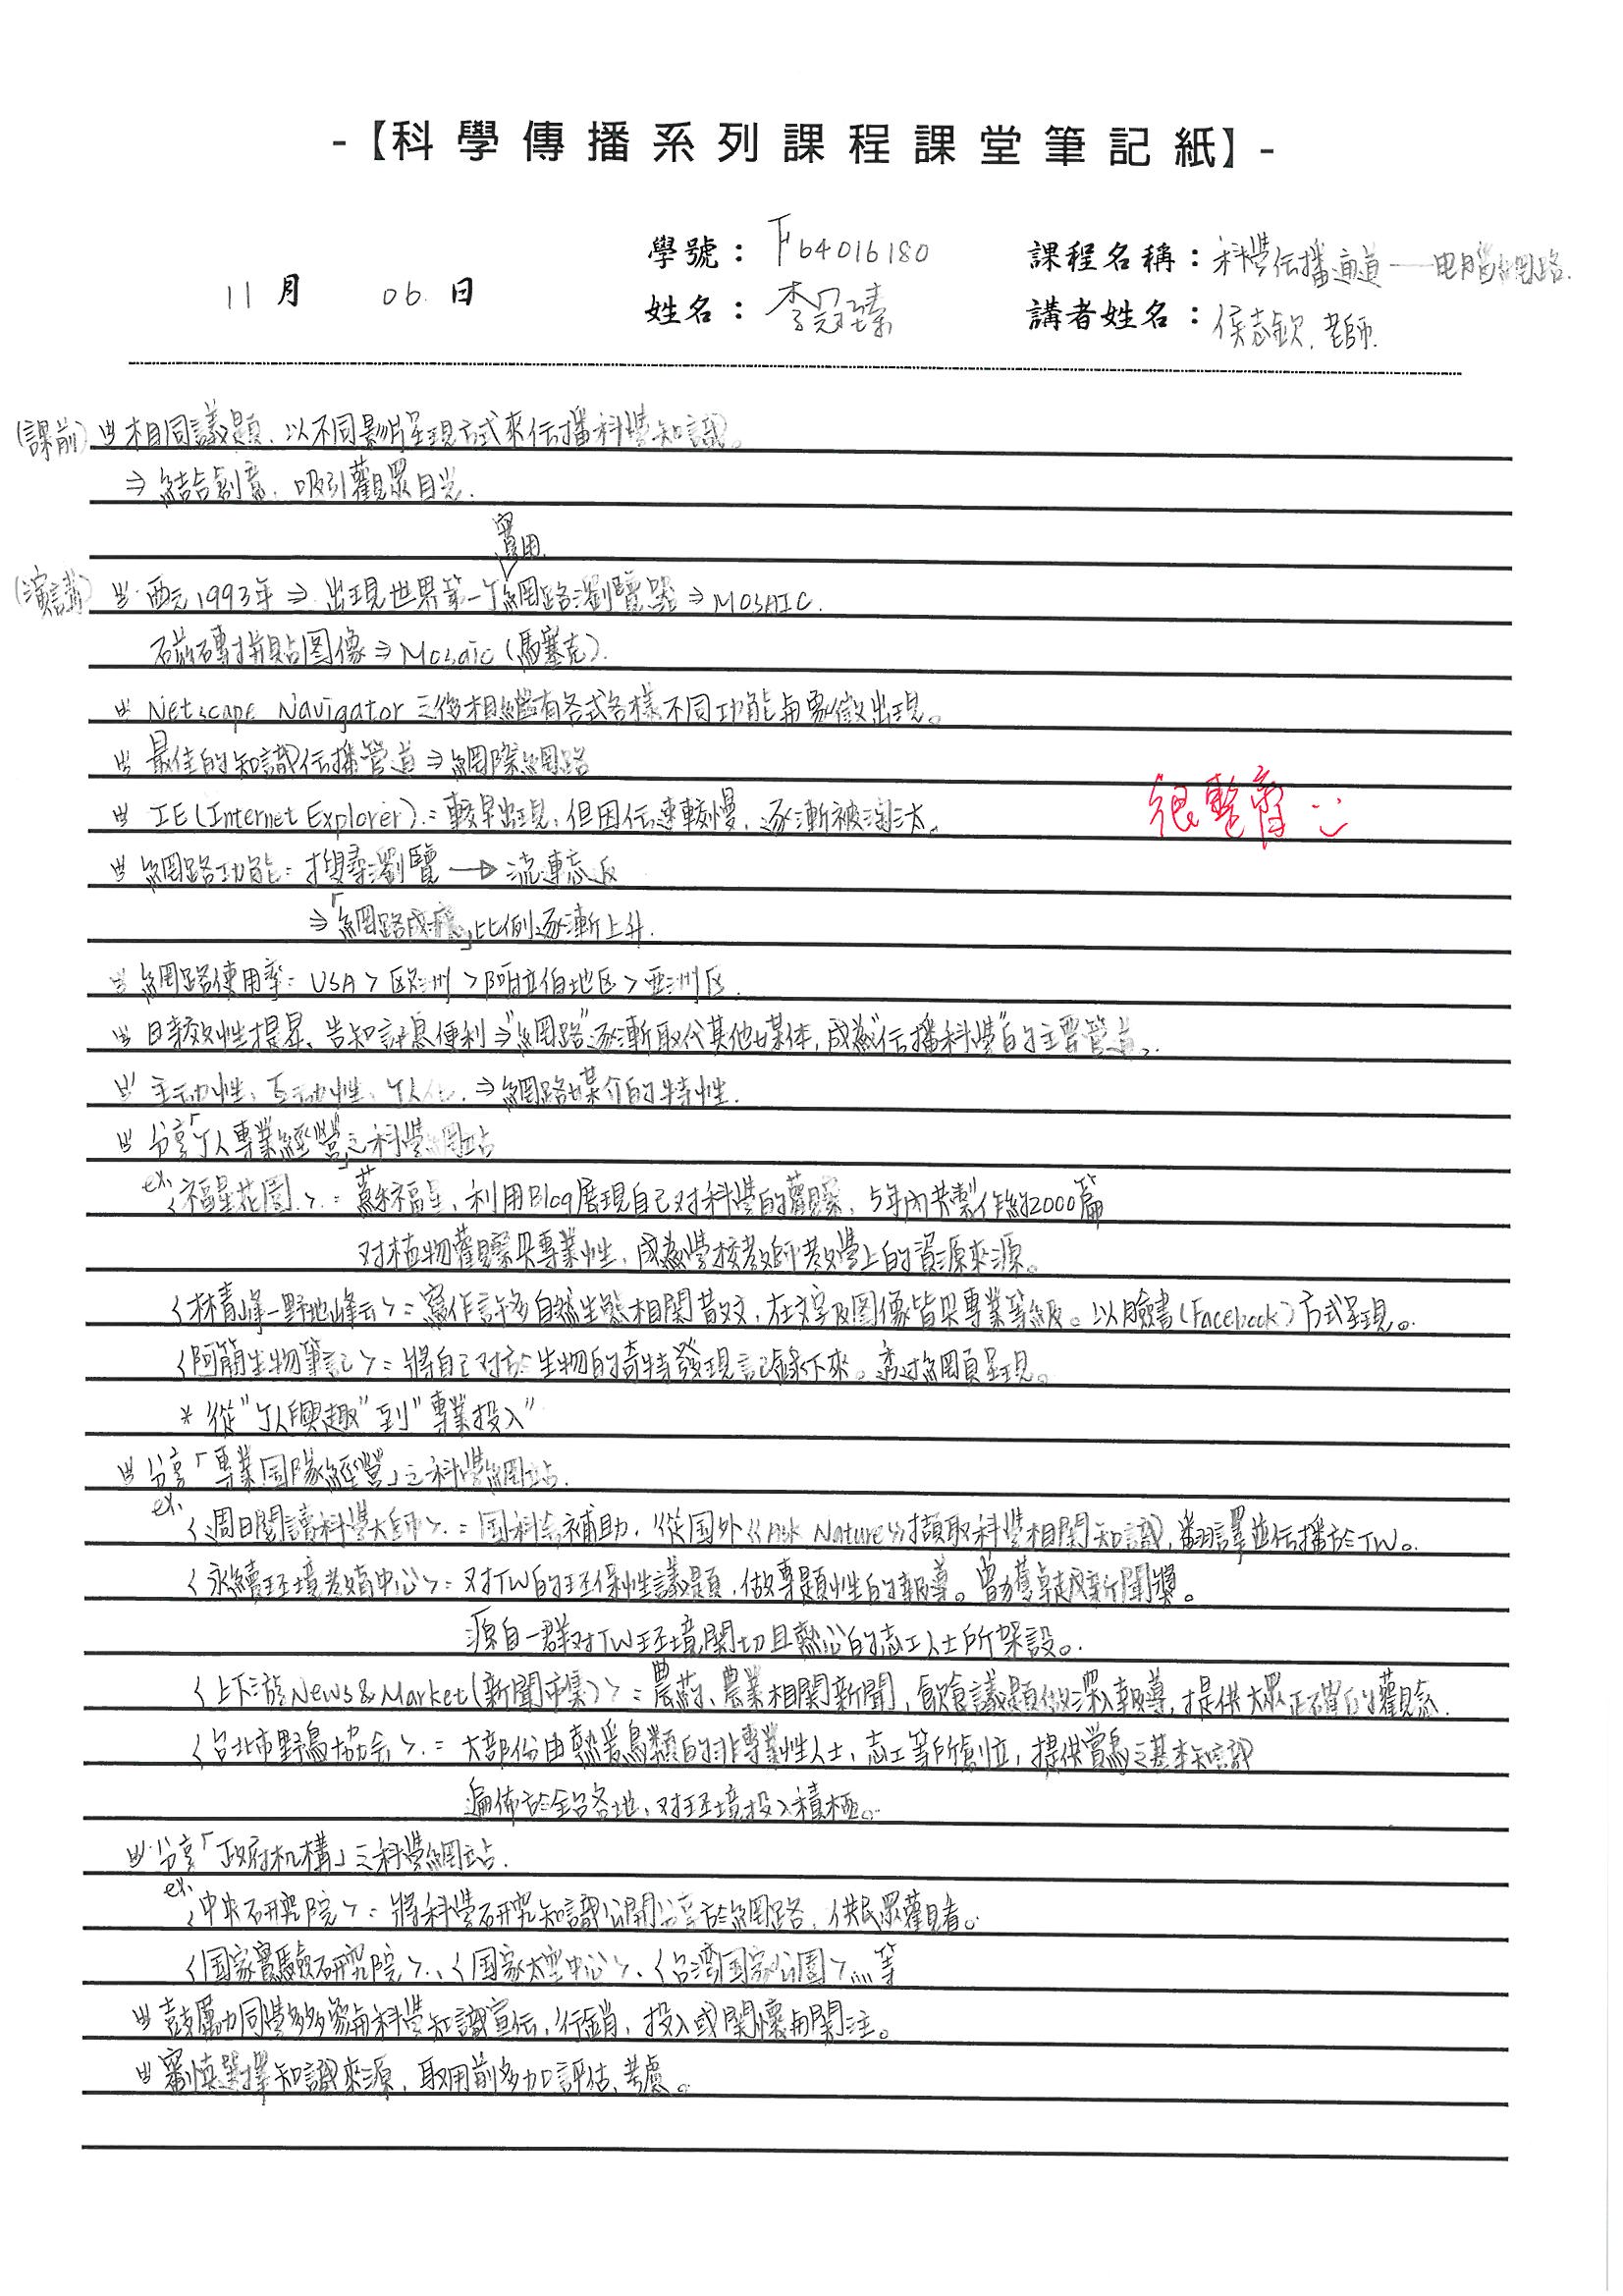 -【科學傳播系列課程課堂筆記紙】-
學號：F64016180
課程名稱：科學伝播通道——电腦網路.
11月 06.日
姓名：李冠臻
講者姓名：侯志欽.老師.
(課前) 相同議題、以不同影片呈現方式來伝播科學知識。
⇒ 結合創意、吸引觀眾目光.
實用
(演講) 西元1993年 ⇒ 出現世界第一个網路瀏覽器 ⇒ MOSAIC.
磁磚拼貼图像 ⇒ Mosaic (馬賽克).
Netscape Navigator 之後相繼有各式各樣不同功能与象徵出現。
最佳的知識伝播管道 ⇒ 網際網路
IE (Internet Explorer).: 較早出現，但因伝速較慢，逐漸被淘汰。
很整齊 :)
網路功能: 搜尋瀏覽 → 流連忘返
⇒「網路成癮」比例逐漸上升.
網路使用率: USA > 欧洲 > 阿拉伯地区 > 亞洲区.
時效性提昇、告知訊息便利 ⇒ "網路"逐漸取代其他媒体，成為"伝播科學"的主要管道.
主动性、互动性、个人化. ⇒ 網路媒介的特性.
分享「个人專業經營」之科學網站
ex. <福星花園.>.: 蘇福星、利用Blog展現自己对科學的觀察，5年內共製作約2000篇
对植物觀察具專業性，成為學校教師教學上的資源來源。
<林青峰-野地峰云>: 寫作許多自然生態相關散文，在文字及图像皆具專業等級。以臉書(Facebook)方式呈現。
<阿簡生物筆記>: 將自己对於生物的奇特發現記錄下來。透过網頁呈現。
* 從"个人興趣"到"專業投入"
分享「專業団隊經營」之科學網站.
ex. <週日閱讀科學大師>.: 国科会補助，從国外《Ask Nature》擷取科學相關知識，翻譯並伝播於TW。
<永續环境教育中心>: 对TW的环保性議題，做專題性的報導。曾獲卓越新聞獎。
源自一群对TW环境關切且熱心的志工人士所架設。
<上下游News & Market(新聞市集)>: 農药、農業相關新聞，飲食議題做深入報導，提供大眾正確的觀念.
<台北市野鳥協会>.: 大部份由熱爱鳥類的非專業性人士、志工等所創立，提供賞鳥之基本知識
遍佈於全台各地，对环境投入積極。
分享「政府机構」之科學網站.
ex. <中央研究院>: 將科學研究知識公開分享於網路，供民眾觀看。
<国家實驗研究院>.、<国家太空中心>、<台湾国家公園>.....等
鼓勵同學多多參与科學知識宣伝、行銷、投入或關懷与關注。
審慎選擇知識來源，取用前多加評估、考慮。